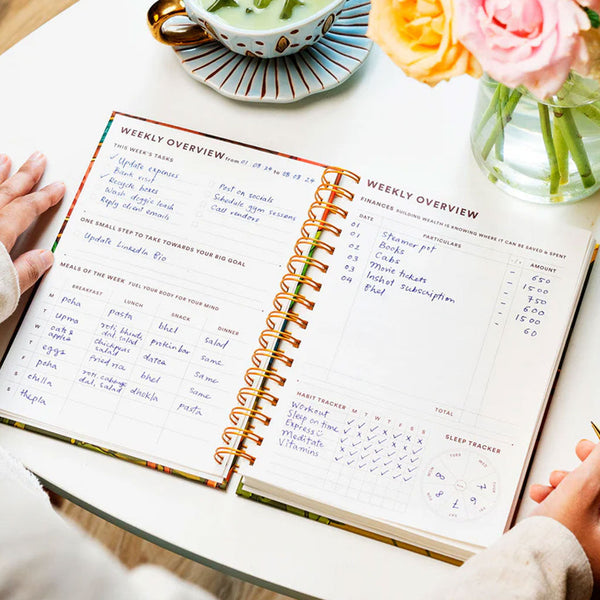 WEEKLY OVERVIEW from 01.08.24 to 08.08.24
THIS WEEK'S TASKS
✓ Update expenses
Bank visit
✓ Recycle boxes
Wash doggie leash
Reply client emails
Post on socials
Schedule gym sessions
Call vendors
ONE SMALL STEP TO TAKE TOWARDS YOUR BIG GOAL
Update LinkedIn Bio
MEALS OF THE WEEK FUEL YOUR BODY FOR YOUR MIND
BREAKFAST LUNCH SNACK DINNER
M poha pasta bhel salad
T upma roti, bhindi, dal, salad protein bar same
W oats & apples chickpeas salad dates same
T eggs Fried rice bhel same
F poha roti, cabbage dal, salad dhokla same
S chilla pasta
S thepla
WEEKLY OVERVIEW
FINANCES BUILDING WEALTH IS KNOWING WHERE IT CAN BE SAVED & SPENT
DATE PARTICULARS AMOUNT
01 Steamer pot 650
01 Books 1500
02 Cabs 750
03 Movie tickets 600
03 Inshot subscription 1500
04 Bhel 60
TOTAL
HABIT TRACKER M T W T F S S
Workout
Sleep on time
Express
Meditate
Vitamins
SLEEP TRACKER
TUES
8 7 6 7 8